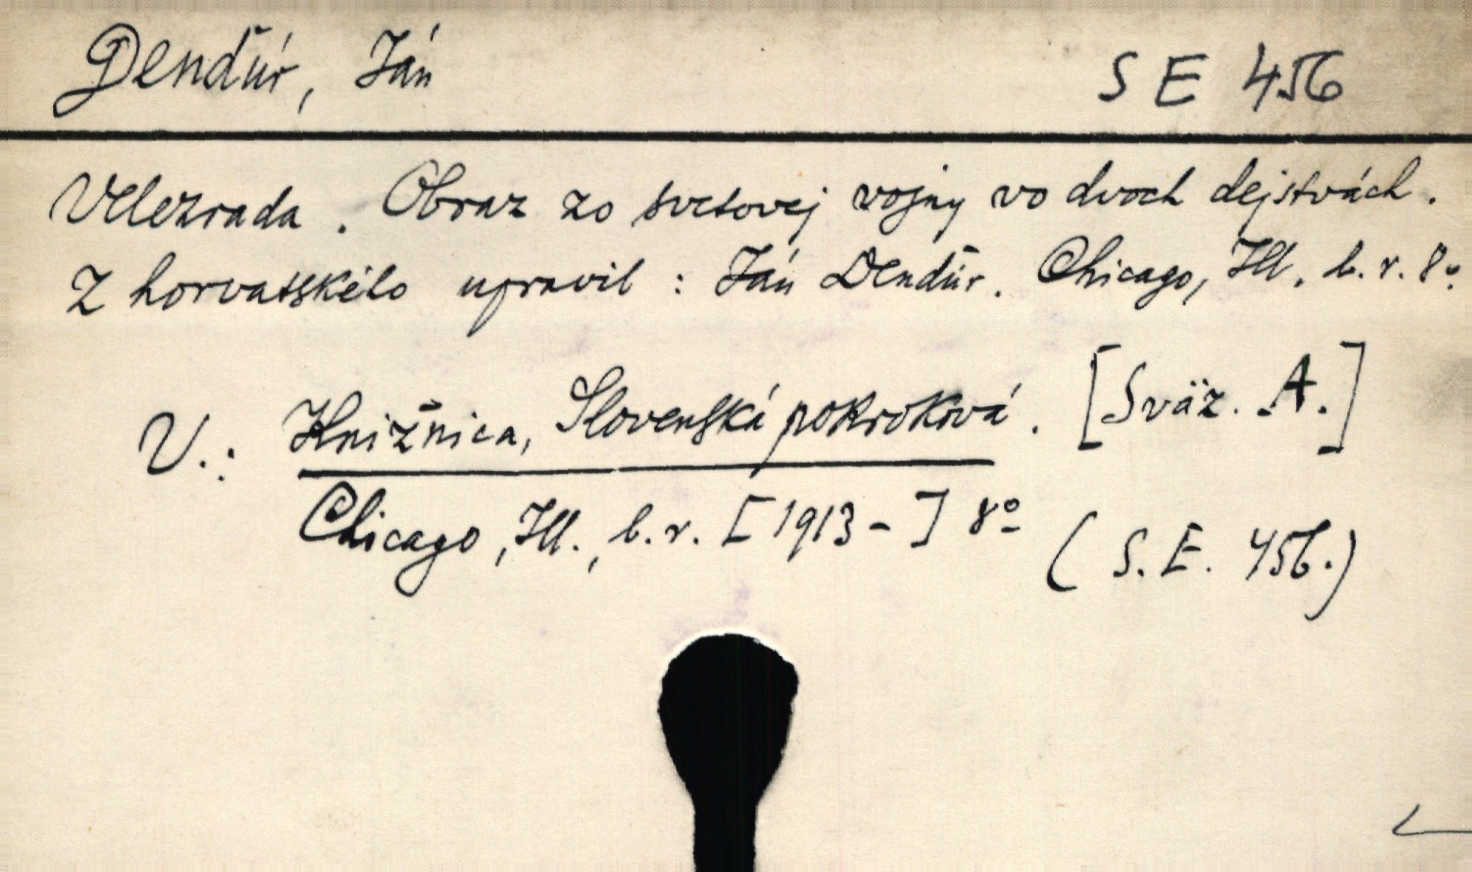 Dendúr, Ján
S E 456
Velezrada. Obraz zo svetovej vojny vo dvoch dejstvách.
Z horvatského upravil: Ján Dendúr. Chicago, Ill. b. r. 8º
V.: Knižnica, Slovenská pokroková. [Sväz. A.]
Chicago, Ill., b. r. [1913- ] 8º (S. E. 456.)